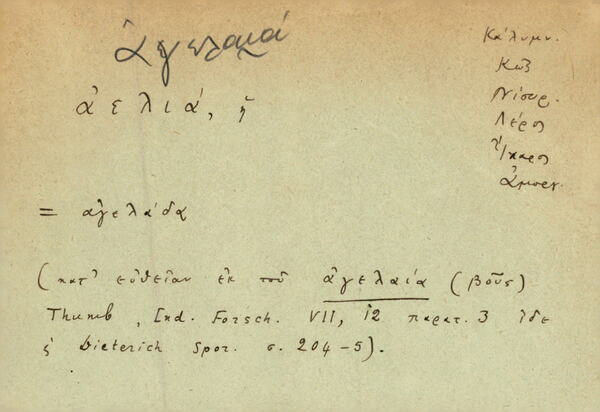 ἀελιά, ἡ
Κάλυμν.
Κῶς
Νίσυρ.
Λέρος
Ἴκαρος
Ἀμοργ.
= ἀγελάδα
(κατ' εὐθεῖαν ἐκ τοῦ ἀγελαία (βοῦς)
Thumb, Ind. Forsch. VII, 12 παρατ. 3 ἰδὲ
ς Dieterich Spor. σ. 204-5).